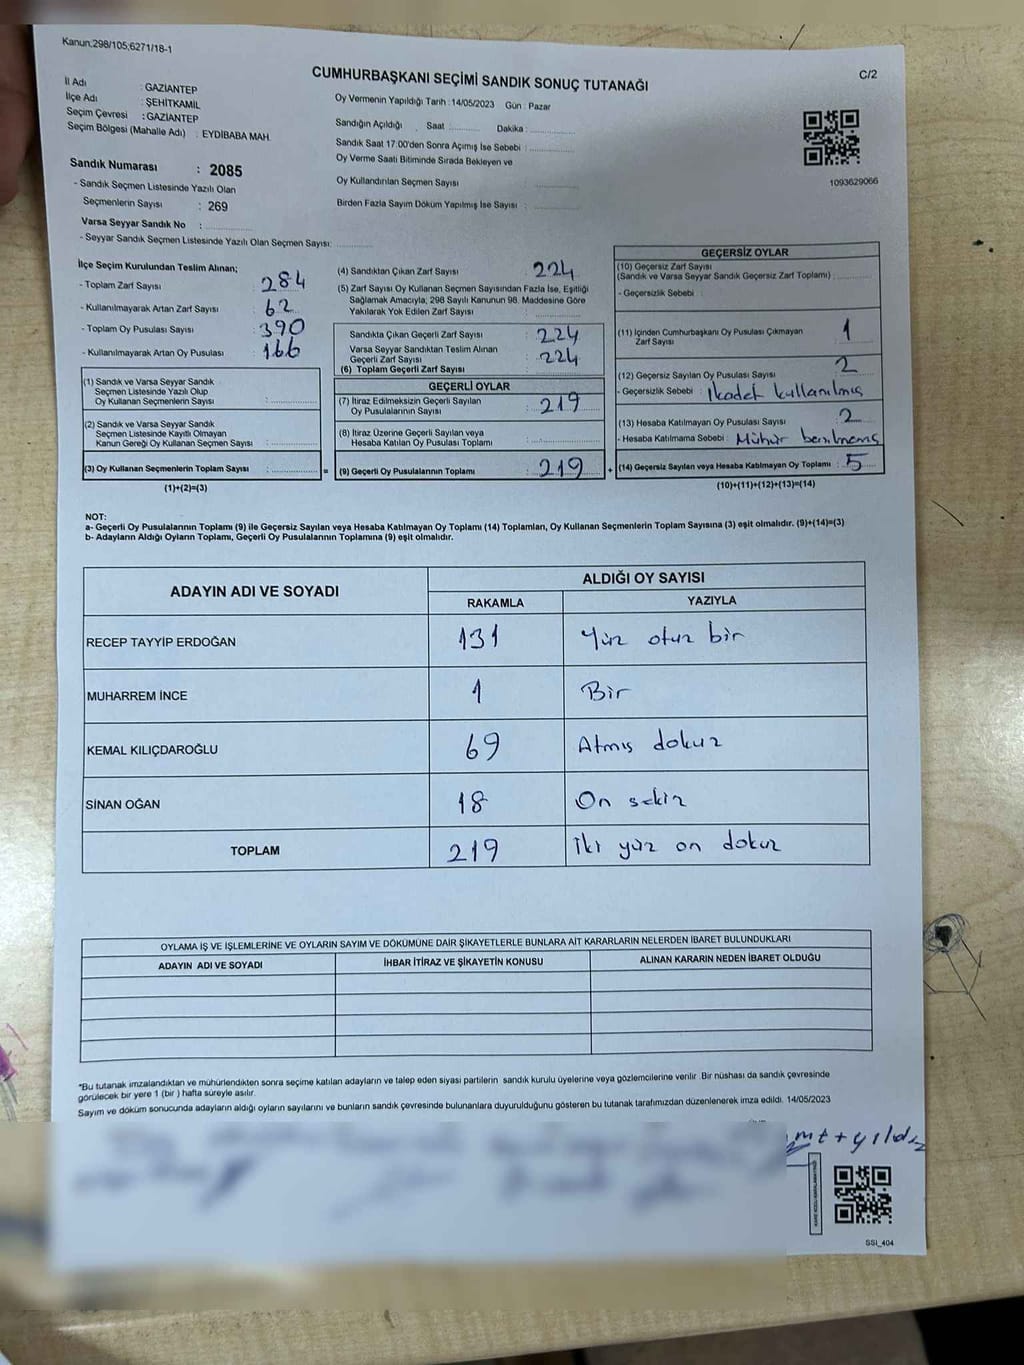 Kanun;298/105;6271/18-1
C/2
CUMHURBAŞKANI SEÇİMİ SANDIK SONUÇ TUTANAĞI
İl Adı : GAZİANTEP
İlçe Adı : ŞEHİTKAMİL
Seçim Çevresi : GAZİANTEP
Seçim Bölgesi (Mahalle Adı) : EYDİBABA MAH.
Sandık Numarası : 2085
- Sandık Seçmen Listesinde Yazılı Olan
Seçmenlerin Sayısı : 269
Varsa Seyyar Sandık No :
- Seyyar Sandık Seçmen Listesinde Yazılı Olan Seçmen Sayısı:
Oy Vermenin Yapıldığı Tarih : 14/05/2023 Gün : Pazar
Sandığın Açıldığı Saat Dakika :
Sandık Saat 17:00'den Sonra Açımış İse Sebebi :
Oy Verme Saati Bitiminde Sırada Bekleyen ve
Oy Kullandırılan Seçmen Sayısı :
Birden Fazla Sayım Döküm Yapılmış İse Sayısı :
1093629066
İlçe Seçim Kurulundan Teslim Alınan;
- Toplam Zarf Sayısı : 284
- Kullanılmayarak Artan Zarf Sayısı : 62
- Toplam Oy Pusulası Sayısı : 390
- Kullanılmayarak Artan Oy Pusulası : 166
(1) Sandık ve Varsa Seyyar Sandık
Seçmen Listesinde Yazılı Olup
Oy Kullanan Seçmenlerin Sayısı :
(2) Sandık ve Varsa Seyyar Sandık
Seçmen Listesinde Kayıtlı Olmayan
Kanun Gereği Oy Kullanan Seçmen Sayısı :
(3) Oy Kullanan Seçmenlerin Toplam Sayısı : =
(1)+(2)=(3)
(4) Sandıktan Çıkan Zarf Sayısı : 224
(5) Zarf Sayısı Oy Kullanan Seçmen Sayısından Fazla İse, Eşitliği
Sağlamak Amacıyla, 298 Sayılı Kanunun 98. Maddesine Göre
Yakılarak Yok Edilen Zarf Sayısı :
Sandıkta Çıkan Geçerli Zarf Sayısı : 224
Varsa Seyyar Sandıktan Teslim Alınan
Geçerli Zarf Sayısı : 224
(6) Toplam Geçerli Zarf Sayısı
GEÇERLİ OYLAR
(7) İtiraz Edilmeksizin Geçerli Sayılan
Oy Pusulalarının Sayısı : 219
(8) İtiraz Üzerine Geçerli Sayılan veya
Hesaba Katılan Oy Pusulası Toplamı :
(9) Geçerli Oy Pusulalarının Toplamı : 219 +
GEÇERSİZ OYLAR
(10) Geçersiz Zarf Sayısı
(Sandık ve Varsa Seyyar Sandık Geçersiz Zarf Toplamı) :
- Geçersizlik Sebebi :
(11) İçinden Cumhurbaşkanı Oy Pusulası Çıkmayan
Zarf Sayısı : 1
(12) Geçersiz Sayılan Oy Pusulası Sayısı : 2
- Geçersizlik Sebebi : 1kadet kullanılmış
(13) Hesaba Katılmayan Oy Pusulası Sayısı : 2
- Hesaba Katılmama Sebebi : Mühür
(14) Geçersiz Sayılan veya Hesaba Katılmayan Oy Toplamı : 5
(10)+(11)+(12)+(13)=(14)
NOT:
a- Geçerli Oy Pusulalarının Toplamı (9) ile Geçersiz Sayılan veya Hesaba Katılmayan Oy Toplamı (14) Toplamları, Oy Kullanan Seçmenlerin Toplam Sayısına (3) eşit olmalıdır. (9)+(14)=(3)
b- Adayların Aldığı Oyların Toplamı, Geçerli Oy Pusulalarının Toplamına (9) eşit olmalıdır.
ADAYIN ADI VE SOYADI ALDIĞI OY SAYISI
RAKAMLA YAZIYLA
RECEP TAYYİP ERDOĞAN 131 Yüz otuz bir
MUHARREM İNCE 1 Bir
KEMAL KILIÇDAROĞLU 69 Atmış dokuz
SİNAN OĞAN 18 On sekiz
TOPLAM 219 İki yüz on dokuz
OYLAMA İŞ VE İŞLEMLERİNE VE OYLARIN SAYIM VE DÖKÜMÜNE DAİR ŞİKAYETLERLE BUNLARA AİT KARARLARIN NELERDEN İBARET BULUNDUKLARI
ADAYIN ADI VE SOYADI İHBAR İTİRAZ VE ŞİKAYETİN KONUSU ALINAN KARARIN NEDEN İBARET OLDUĞU
*Bu tutanak imzalandıktan ve mühürlendikten sonra seçime katılan adayların ve talep eden siyasi partilerin sandık kurulu üyelerine veya gözlemcilerine verilir. Bir nüshası da sandık çevresinde
görülecek bir yere 1 (bir ) hafta süreyle asılır.
Sayım ve döküm sonucunda adayların aldığı oyların sayılarını ve bunların sandık çevresinde bulunanlara duyurulduğunu gösteren bu tutanak tarafımızdan düzenlenerek imza edildi. 14/05/2023
SSI_404